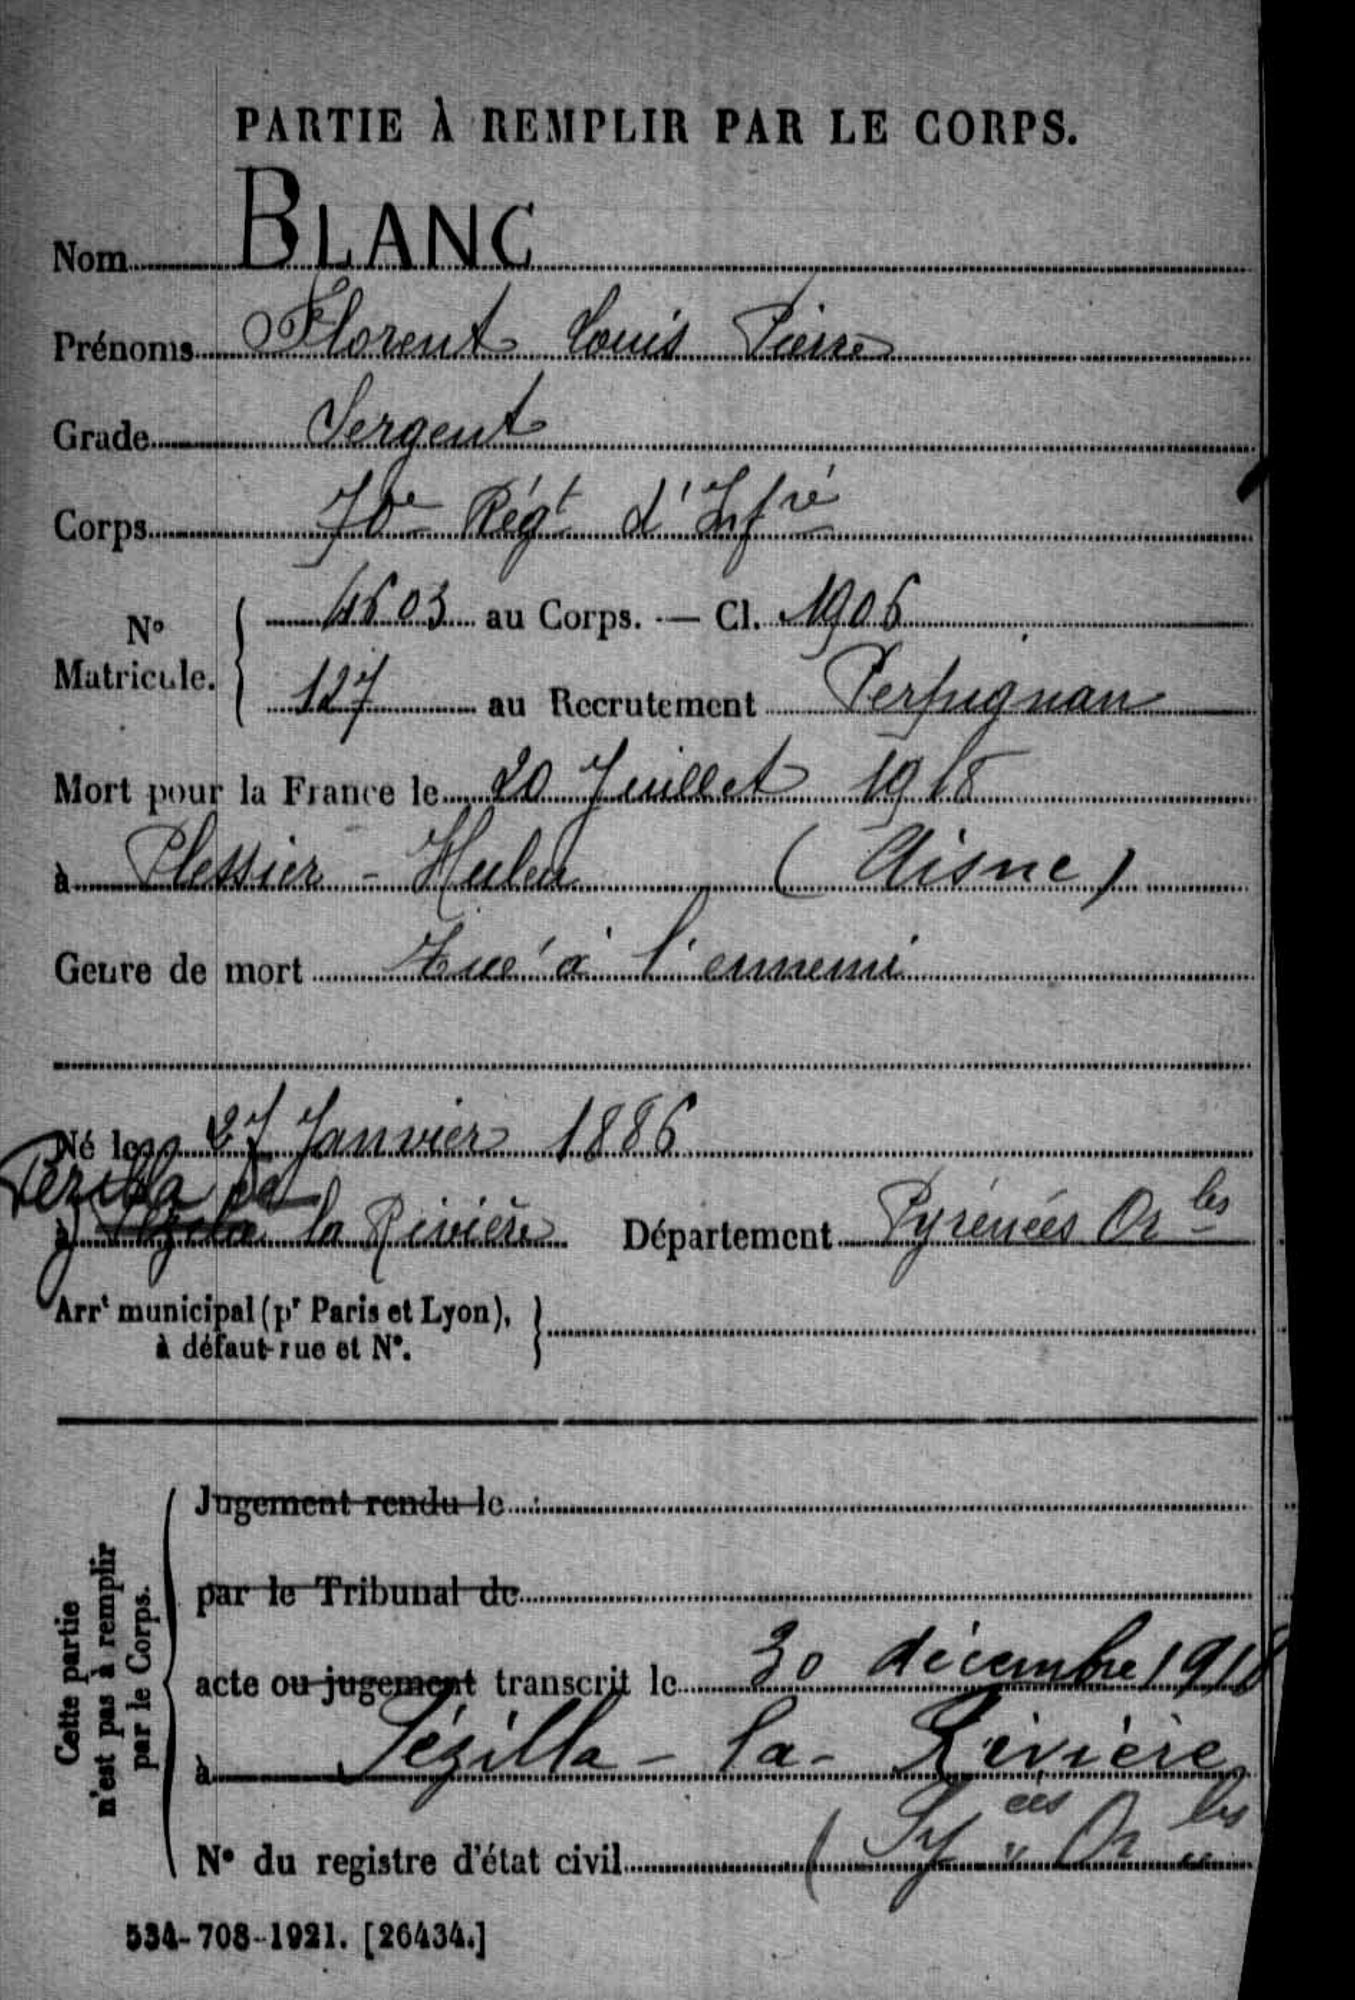 PARTIE À REMPLIR PAR LE CORPS.
Nom BLANC
Prénoms Florent Louis Pierre
Grade Sergent
Corps 70e Régt d'Infrie
No Matricule. 4603 au Corps. — Cl. 1906
127 au Recrutement Perpignan
Mort pour la France le 20 Juillet 1918
à Plessier - Huleu (Aisne)
Genre de mort Tué à l'ennemi
Né le 27 Janvier 1886
Pezilla de
à la Rivière Département Pyrénées Orles
Arrt municipal (pr Paris et Lyon),
à défaut rue et No.
Cette partie
n'est pas à remplir
par le Corps.
Jugement rendu le
par le Tribunal de
acte ou jugement transcrit le 30 décembre 1918
à Pézilla-la-Rivière
No du registre d'état civil (Pyées Orles
534-708-1921. [26434.]